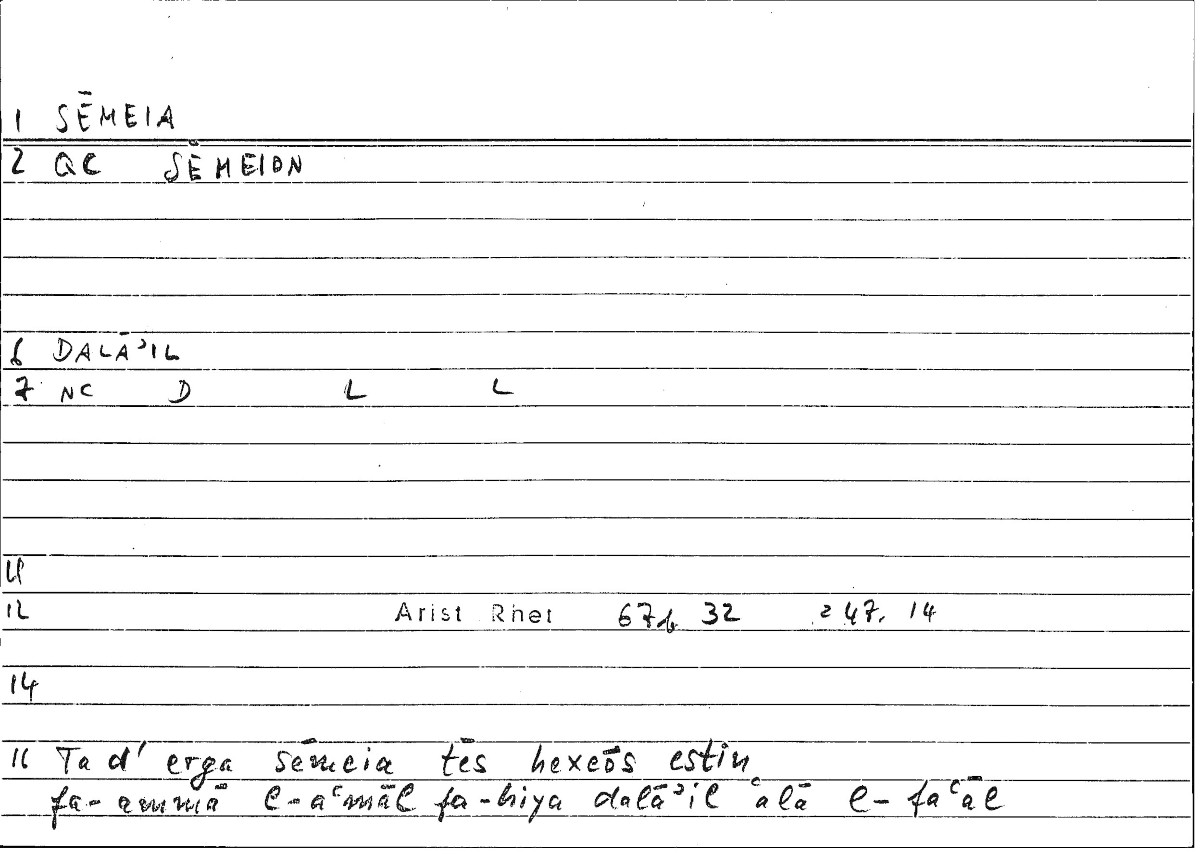 1 SĒMEIA
2 QC SĒMEION
6 DALĀʾIL
7 NC D L L
11
12 Arist Rhet 67b 32 = 47, 14
14
16 Ta d' erga sēmeia tēs hexeōs estin
fa-ammā l-aʿmāl fa-hiya dalāʾil ʿalā l-faʿāl